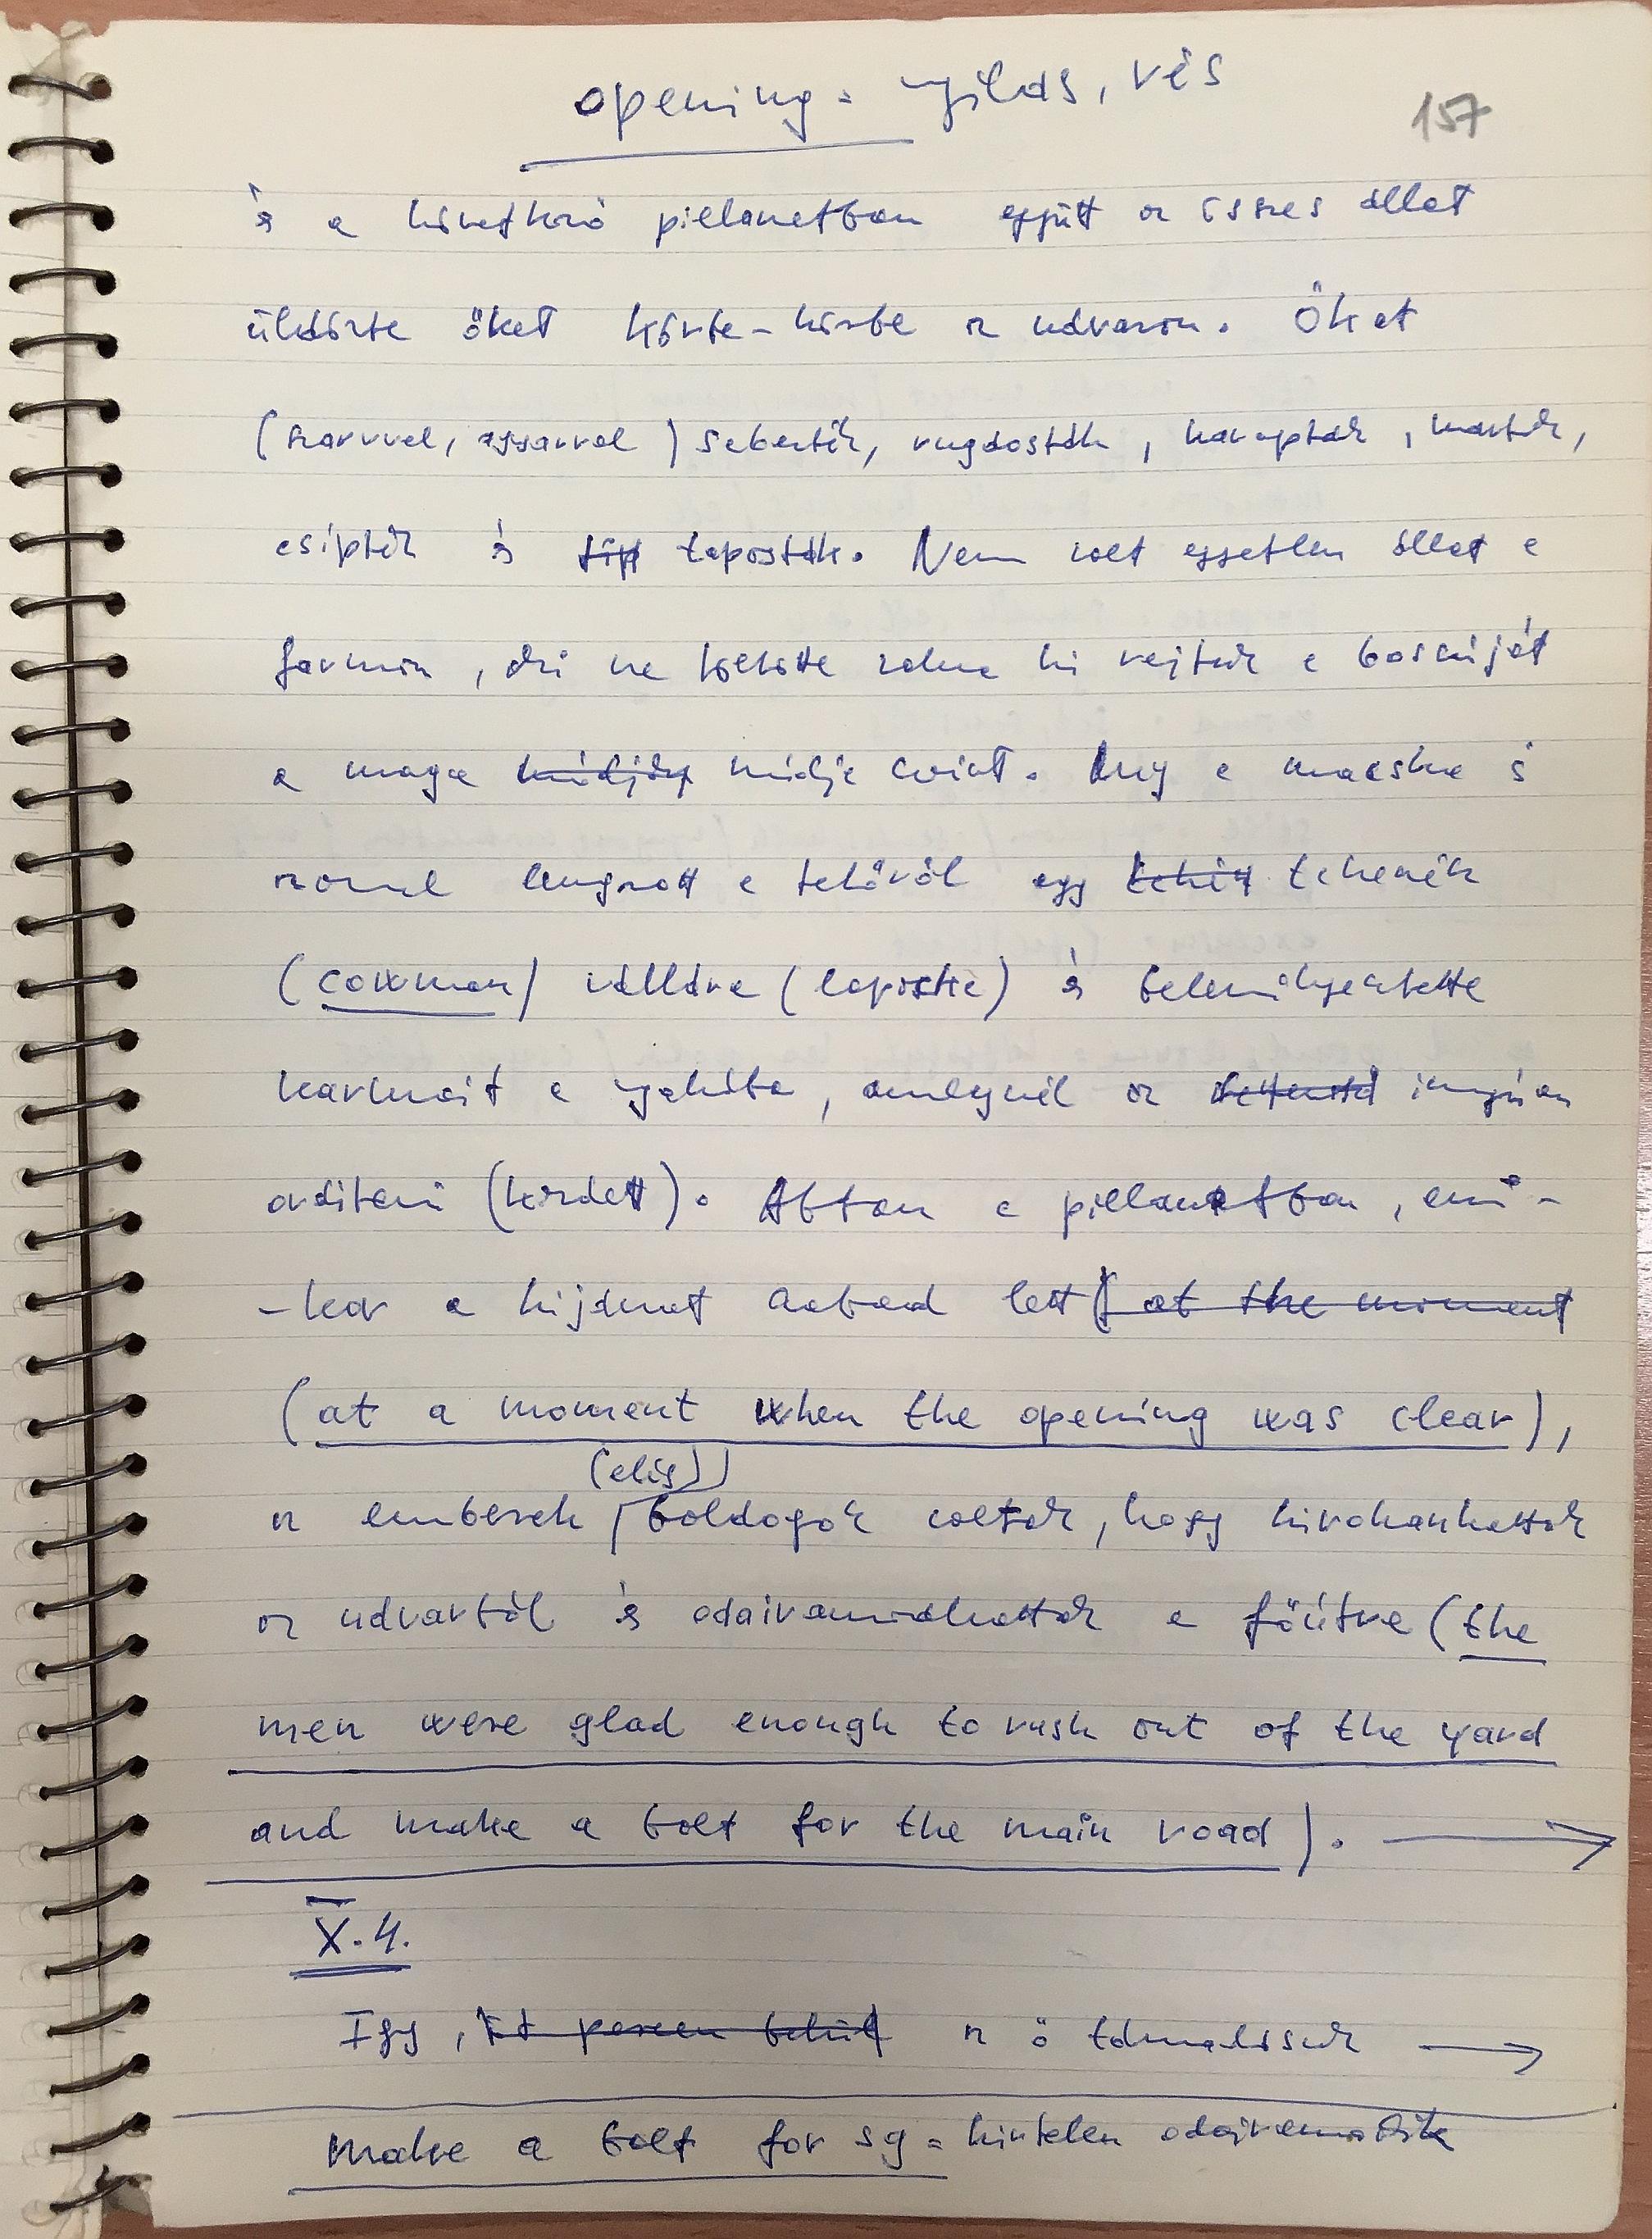 opening = nyílás, rés
157
és a következő pillanatban együtt az összes állat
üldözte őket körbe-körbe az udvaron. Őket
(szarvval, agyarral) sebezték, rugdosták, harapták, marták,
csípték és taposták. Nem volt egyetlen állat a
farmon, aki ne töltötte volna ki rajtuk a bosszúját
a maga módjá módja szerint. Még a macska is
azonnal leugrott a tetőről egy tehén tehenék
(cowman) vállára (lapocka) és belemélyesztette
karmait a nyakába, amelynél az iszonyúan
ordítani (kezdett). Abban a pillanatban, ami-
-kor a kijárat szabad lett (at the moment
(at a moment when the opening was clear),
(elég)
az emberek boldogok voltak, hogy kirohanhattak
az udvarból és odairamodhattak a főútra (the
men were glad enough to rush out of the yard
and make a bolt for the main road). →
X.4.
Így, az ő támadásuk →
Make a bolt for sg = hirtelen odairamodik